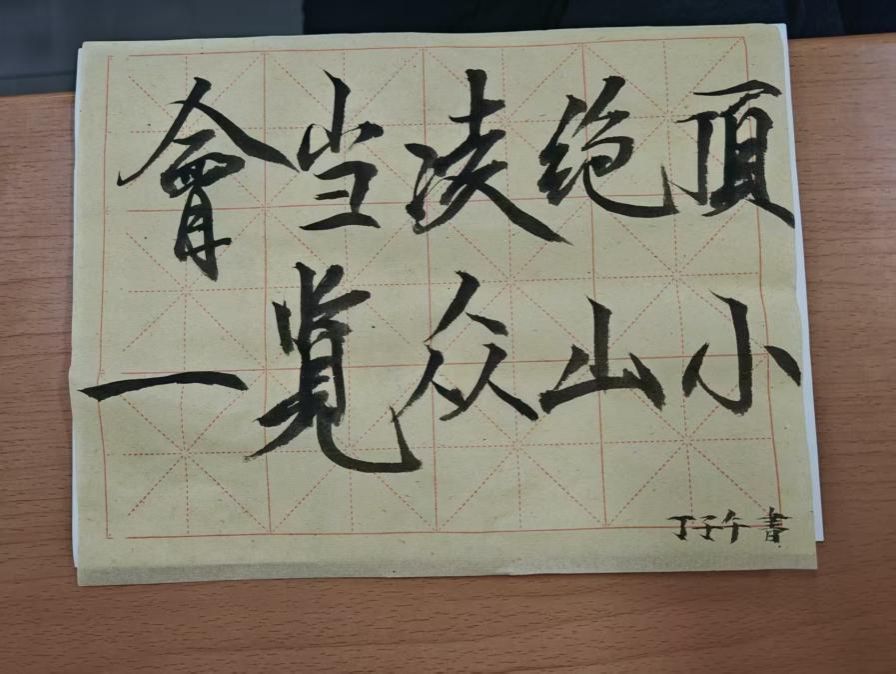 會当凌绝顶
一览众山小
丁子午書